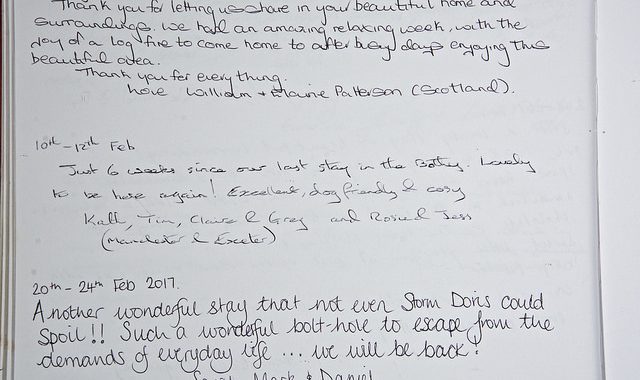 Thank you for letting us share in your beautiful home and
surroundings. We had an amazing relaxing week, with the
joy of a log fire to come home to after busy days enjoying this
beautiful area.
Thank you for everything.
Love William + Elaine Patterson (Scotland).
10th - 12th Feb
Just 6 weeks since our last stay in the Bothy. Lovely
to be here again! Excellent, dog friendly & cosy
Tim, Claire & Greg and Rosie & Jess
(Manchester & Exeter)
20th - 24th Feb 2017.
Another wonderful stay that not even Storm Doris could
Spoil!! Such a wonderful bolt-hole to escape from the
demands of everyday life ... we will be back!
Mark & Daniel